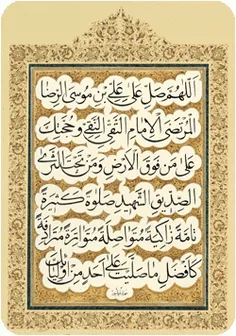 اَللّهُمَّ صَلِّ عَلی عَلِیِّ بْنِ مُوسَی الرِّضَا
الْمُرْتَضَی الْاِمامِ التَّقِیِّ النَّقِیِّ وَ حُجَّتِکَ
عَلی مَنْ فَوْقَ الْاَرْضِ وَ مَنْ تَحْتَ الثَّری
الصِّدّیقِ الشَّهیدِ صَلوةً کَثیرَةً
تامَّةً زاکِیَةً مُتَواصِلَةً مُتَواتِرَةً مُتَرادِفَةً
کَاَفْضَلِ ما صَلَّیْتَ عَلی اَحَدٍ مِنْ اَوْلِیائِکَ